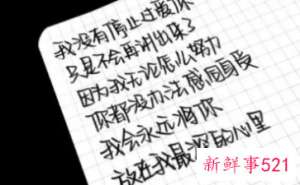 我没有停止过爱你
只是不会再讲出来了
因为我无论怎么努力
你都没办法感同身受
我会永远将你
放在我最深的心里
新鲜事521